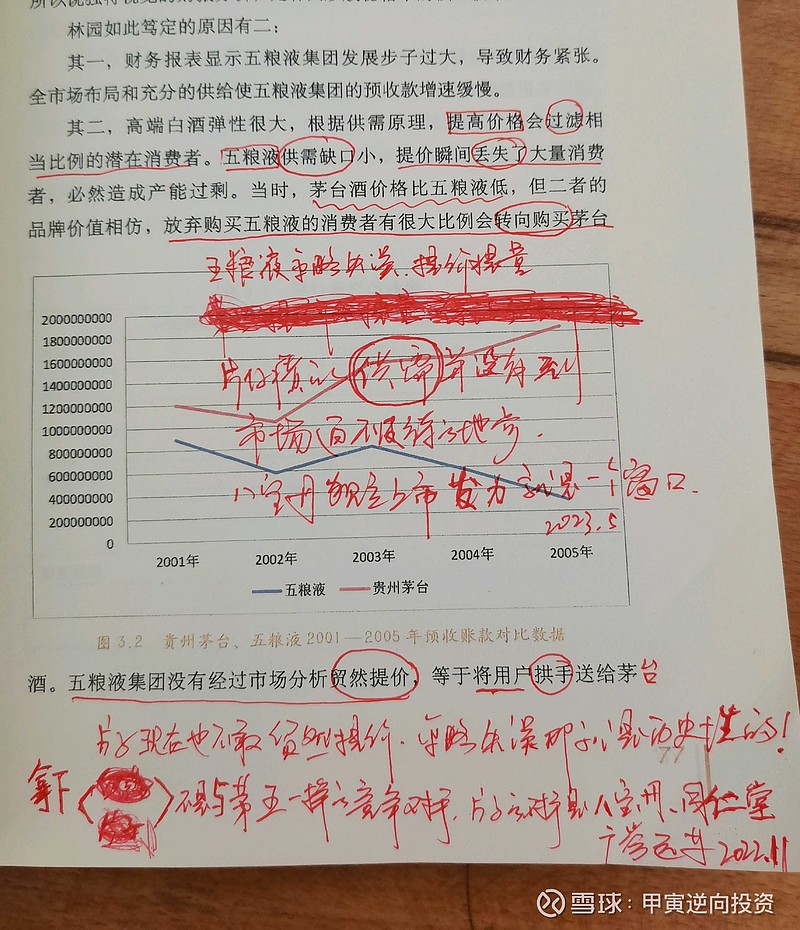 林园如此笃定的原因有二：
其一，财务报表显示五粮液集团发展步子过大，导致财务紧张。
全市场布局和充分的供给使五粮液集团的预收款增速缓慢。
其二，高端白酒弹性很大，根据供需原理，提高价格会过滤相
当比例的潜在消费者。五粮液供需缺口小，提价瞬间丢失了大量消费
者，必然造成产能过剩。当时，茅台酒价格比五粮液低，但二者的
品牌价值相仿，放弃购买五粮液的消费者有很大比例会转向购买茅台
五粮液策略失误、提价
2000000000
1800000000
1600000000
1400000000
1200000000
1000000000
800000000
600000000
400000000
200000000
0
片仔癀 供需 并没有到
市场 不及待的地步.
八宝丹 上市 发力 就是一个窗口.
2023.5
2001年 2002年 2003年 2004年 2005年
五粮液 贵州茅台
图 3.2 贵州茅台、五粮液 2001—2005 年预收账款对比数据
酒。五粮液集团没有经过市场分析贸然提价，等于将用户拱手送给茅台
片子现在也不敢贸然提价、策略失误 历史 的！
77
拿下 茅五一样的竞争对手. 片子的对手是八宝丹、同仁堂
2022.11
雪球：甲寅逆向投资